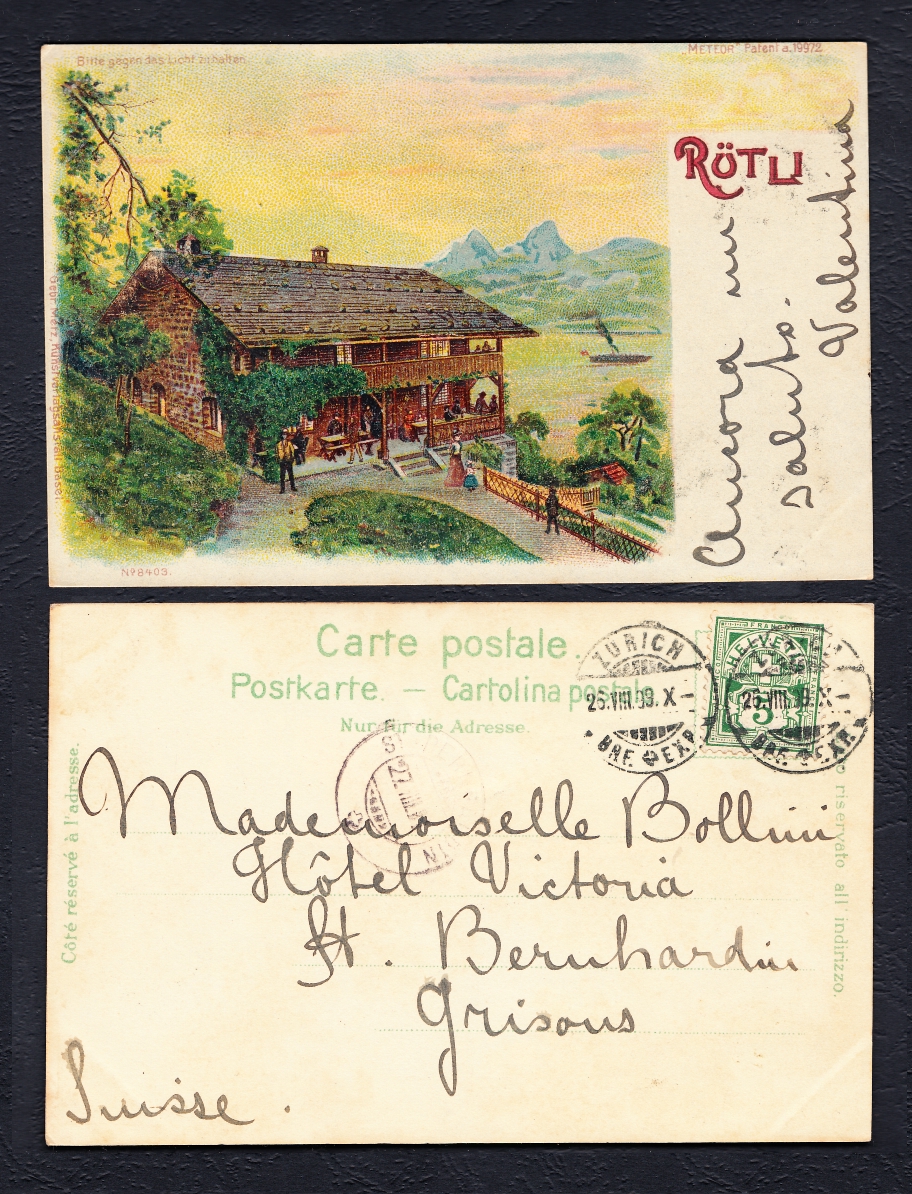 Bitte gegen das Licht zu halten
"METEOR" Patent a.19972
RÜTLI
Ancora un
saluto.
Valentina
Gebr. Metz, Kunstverlagsanstalt Basel.
Nº 8403.
Carte postale.
Postkarte. — Cartolina postale
Nur für die Adresse.
Côté réservé à l'adresse.
riservato all' indirizzo.
ZÜRICH
26.VIII.99.X–
BRF. EXP.
FRANCO
HELVETIA
5
26.VIII.99.X–
BRF. EXP.
27.VIII
Mademoiselle Bollini
Hôtel Victoria
St. Bernhardin
Grisons
Suisse.